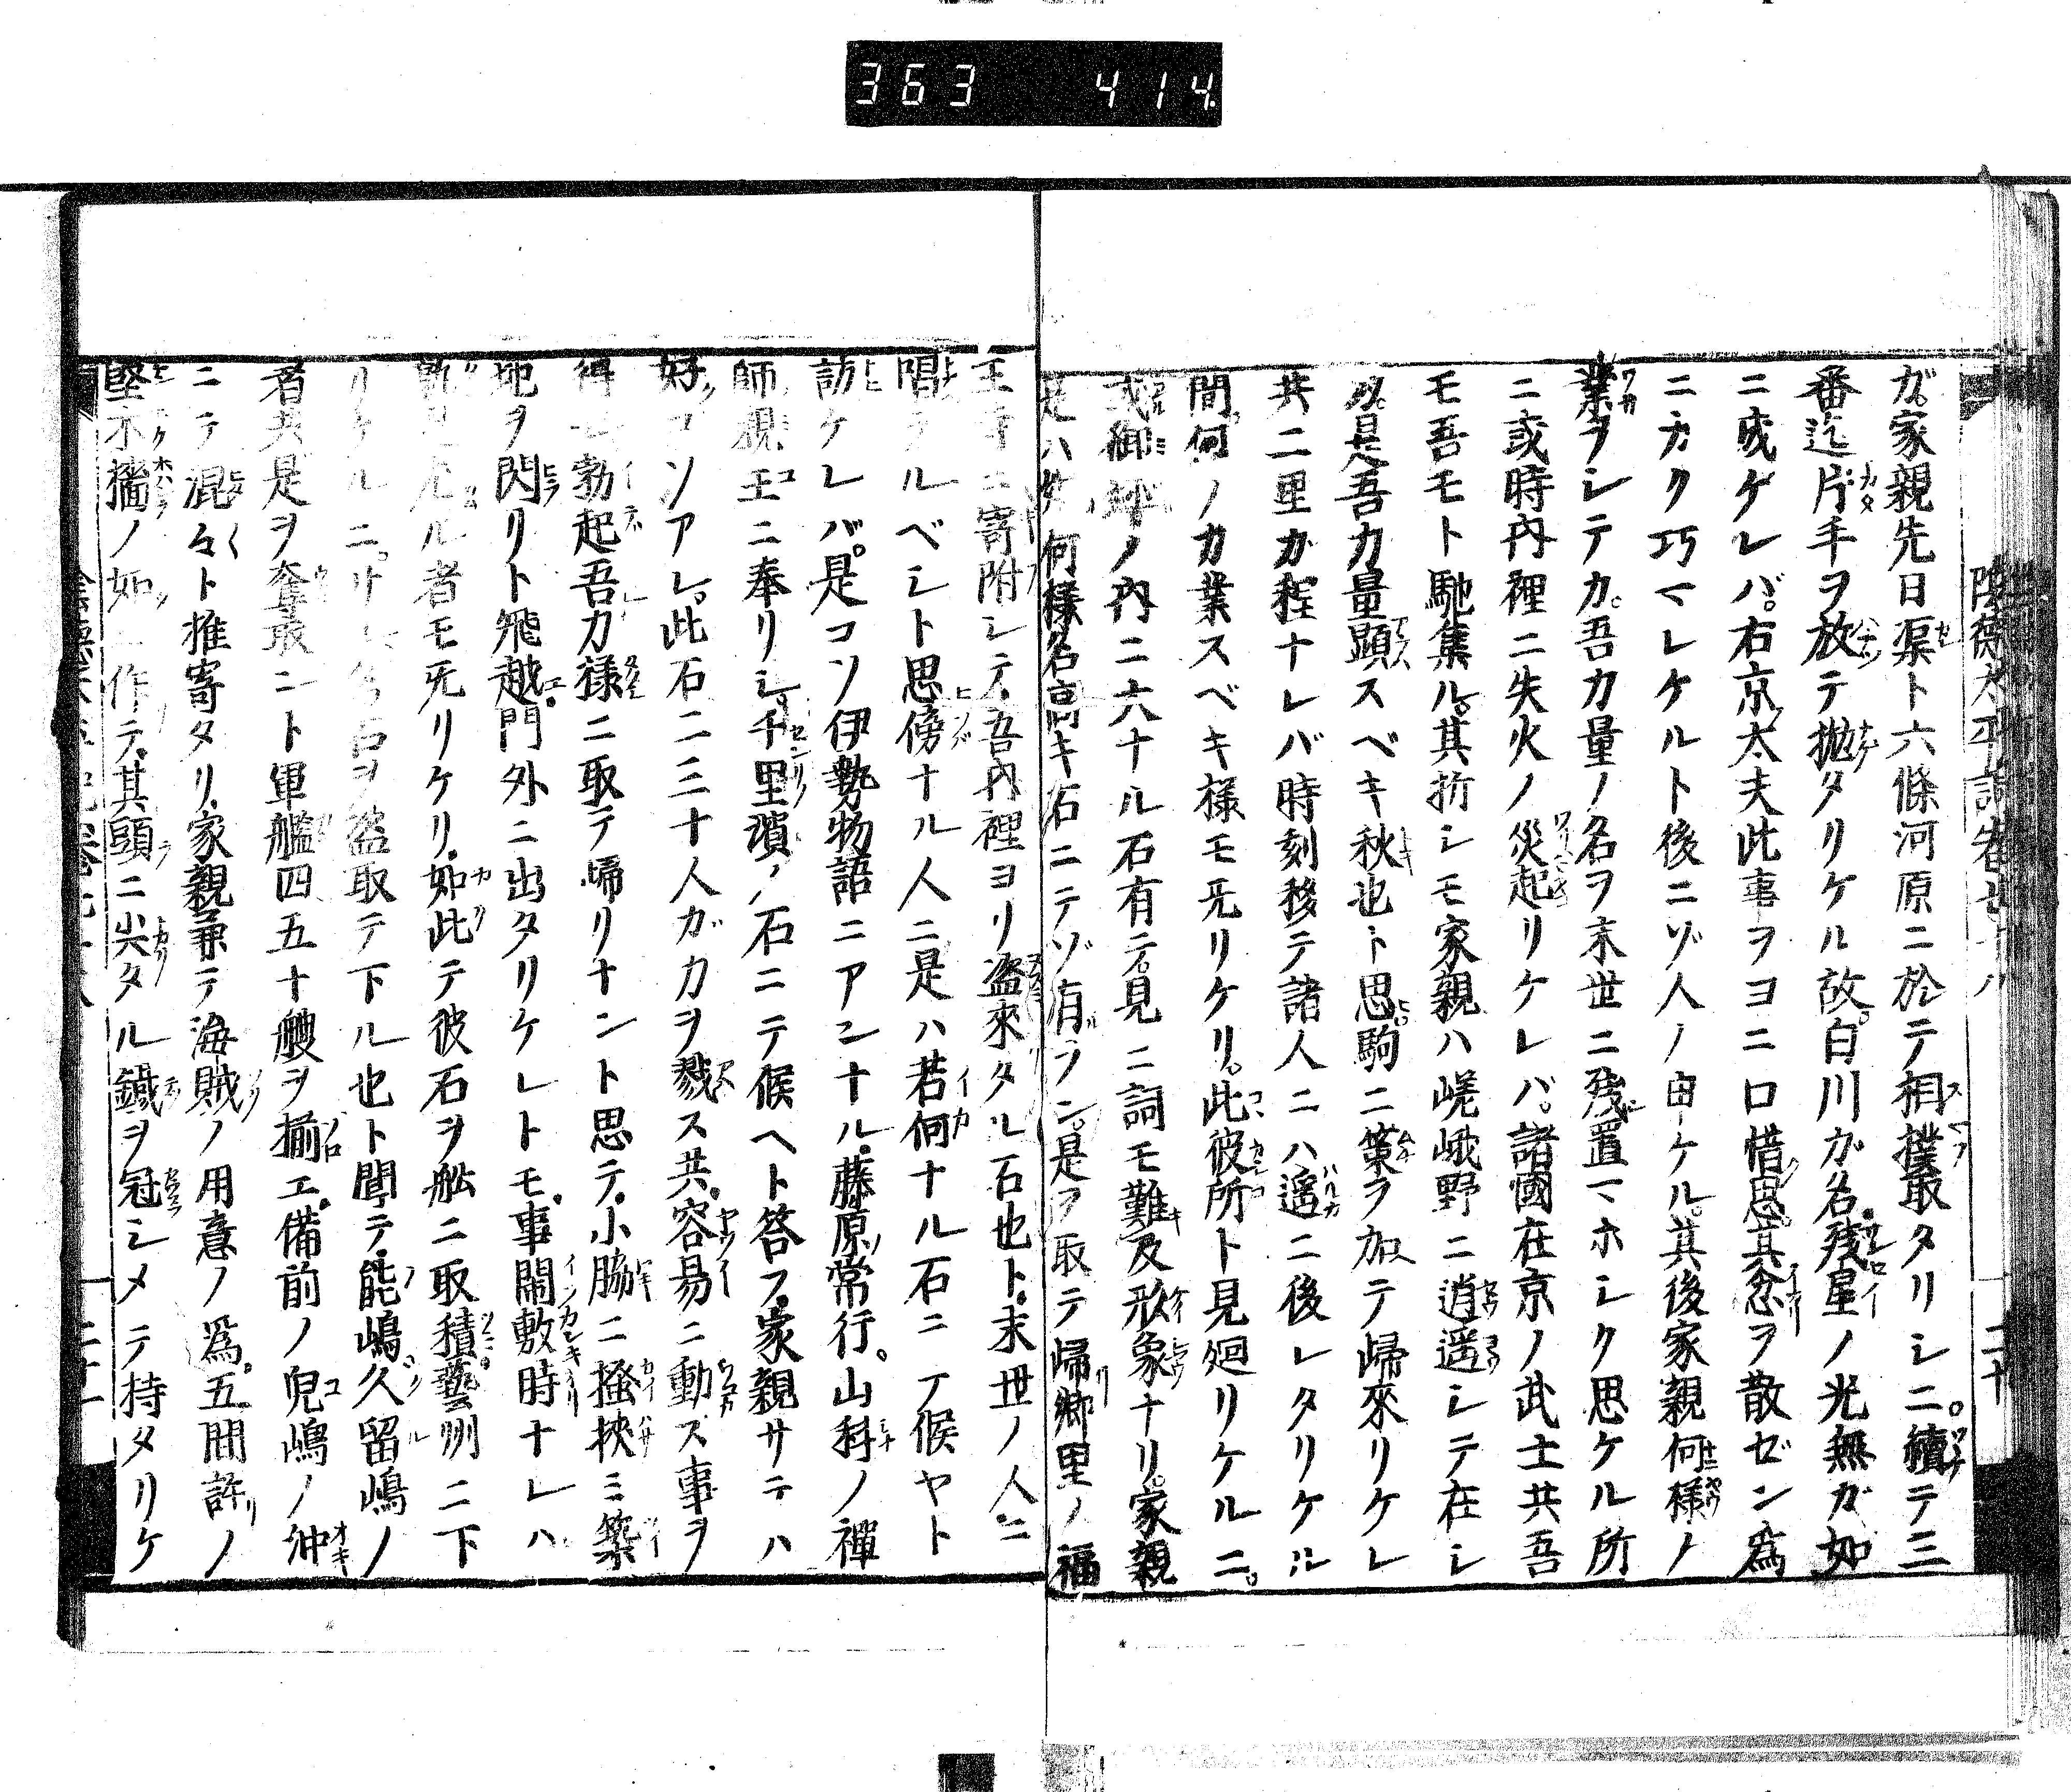 363 414
陰徳太平記卷廿八
二十
ガ家親先日渠ト六條河原ニ於テ相撲取タリシニ續テ三
番迄片手ヲ放テ拋タリケル故白川ガ名殘星ノ光無ガ如
ニ成ケレバ右京太夫此事ヲヨニ口惜思其念ヲ散ゼン爲
ニカク巧マレケルト後ニゾ人ノ申ケル其後家親何樣ノ
業ヲシテカ吾力量ノ名ヲ末世ニ殘置マホシク思ケル所
ニ或時內裡ニ失火ノ災起リケレバ諸國在京ノ武士共吾
モ吾モト馳集ル其折シモ家親ハ嵯峨野ニ逍遥シテ在シ
是吾力量顯スベキ秋也ト思駒ニ策ヲ加テ歸來リケレ
共二里カ程ナレバ時刻移テ諸人ニハ遥ニ後レタリケル
間何ノカ業スベキ樣モ无リケリ此彼所ト見廻リケルニ
或御坪ノ內ニ六ナル石有テ見ニ詞モ難及形象ナリ家親
是ハ何樣名高キ石ニテゾ有ラン是ヲ取テ歸鄕里ノ福
王寺ニ寄附シテ吾內裡ヨリ盜來タル石也ト末世ノ人ニ
唱ラルベシト思傍ナル人ニ是ハ若何ナル石ニテ候ヤト
訪ケレバ是コソ伊勢物語ニアンナル藤原常行山科ノ禪
師親王ニ奉リシ千里濱ノ石ニテ候ヘト答フ家親サテハ
好コソアレ此石二三十人ガ力ヲ戮ス共容易ニ動ス事ヲ
得シ勃起吾力樣ニ取テ歸リナント思テ小脇ニ搔挾ミ築
地ヲ閃リト飛越門外ニ出タリケレトモ事鬧敷時ナレハ
ル者モ无リケリ如此テ彼石ヲ舩ニ取積藝州ニ下
リケルニサレ名石ヲ盜取テ下ル也ト聞テ能嶋久留嶋ノ
者共是ヲ奪取ント軍艦四五十艘ヲ揃エ備前ノ兒嶋ノ沖
ニテ混々ト推寄タリ家親兼テ海賊ノ用意ノ爲五間許ノ
堅木ノ如ニ作テ其頭ニ尖タル鐵ヲ冠シメテ持タリケ
二十一